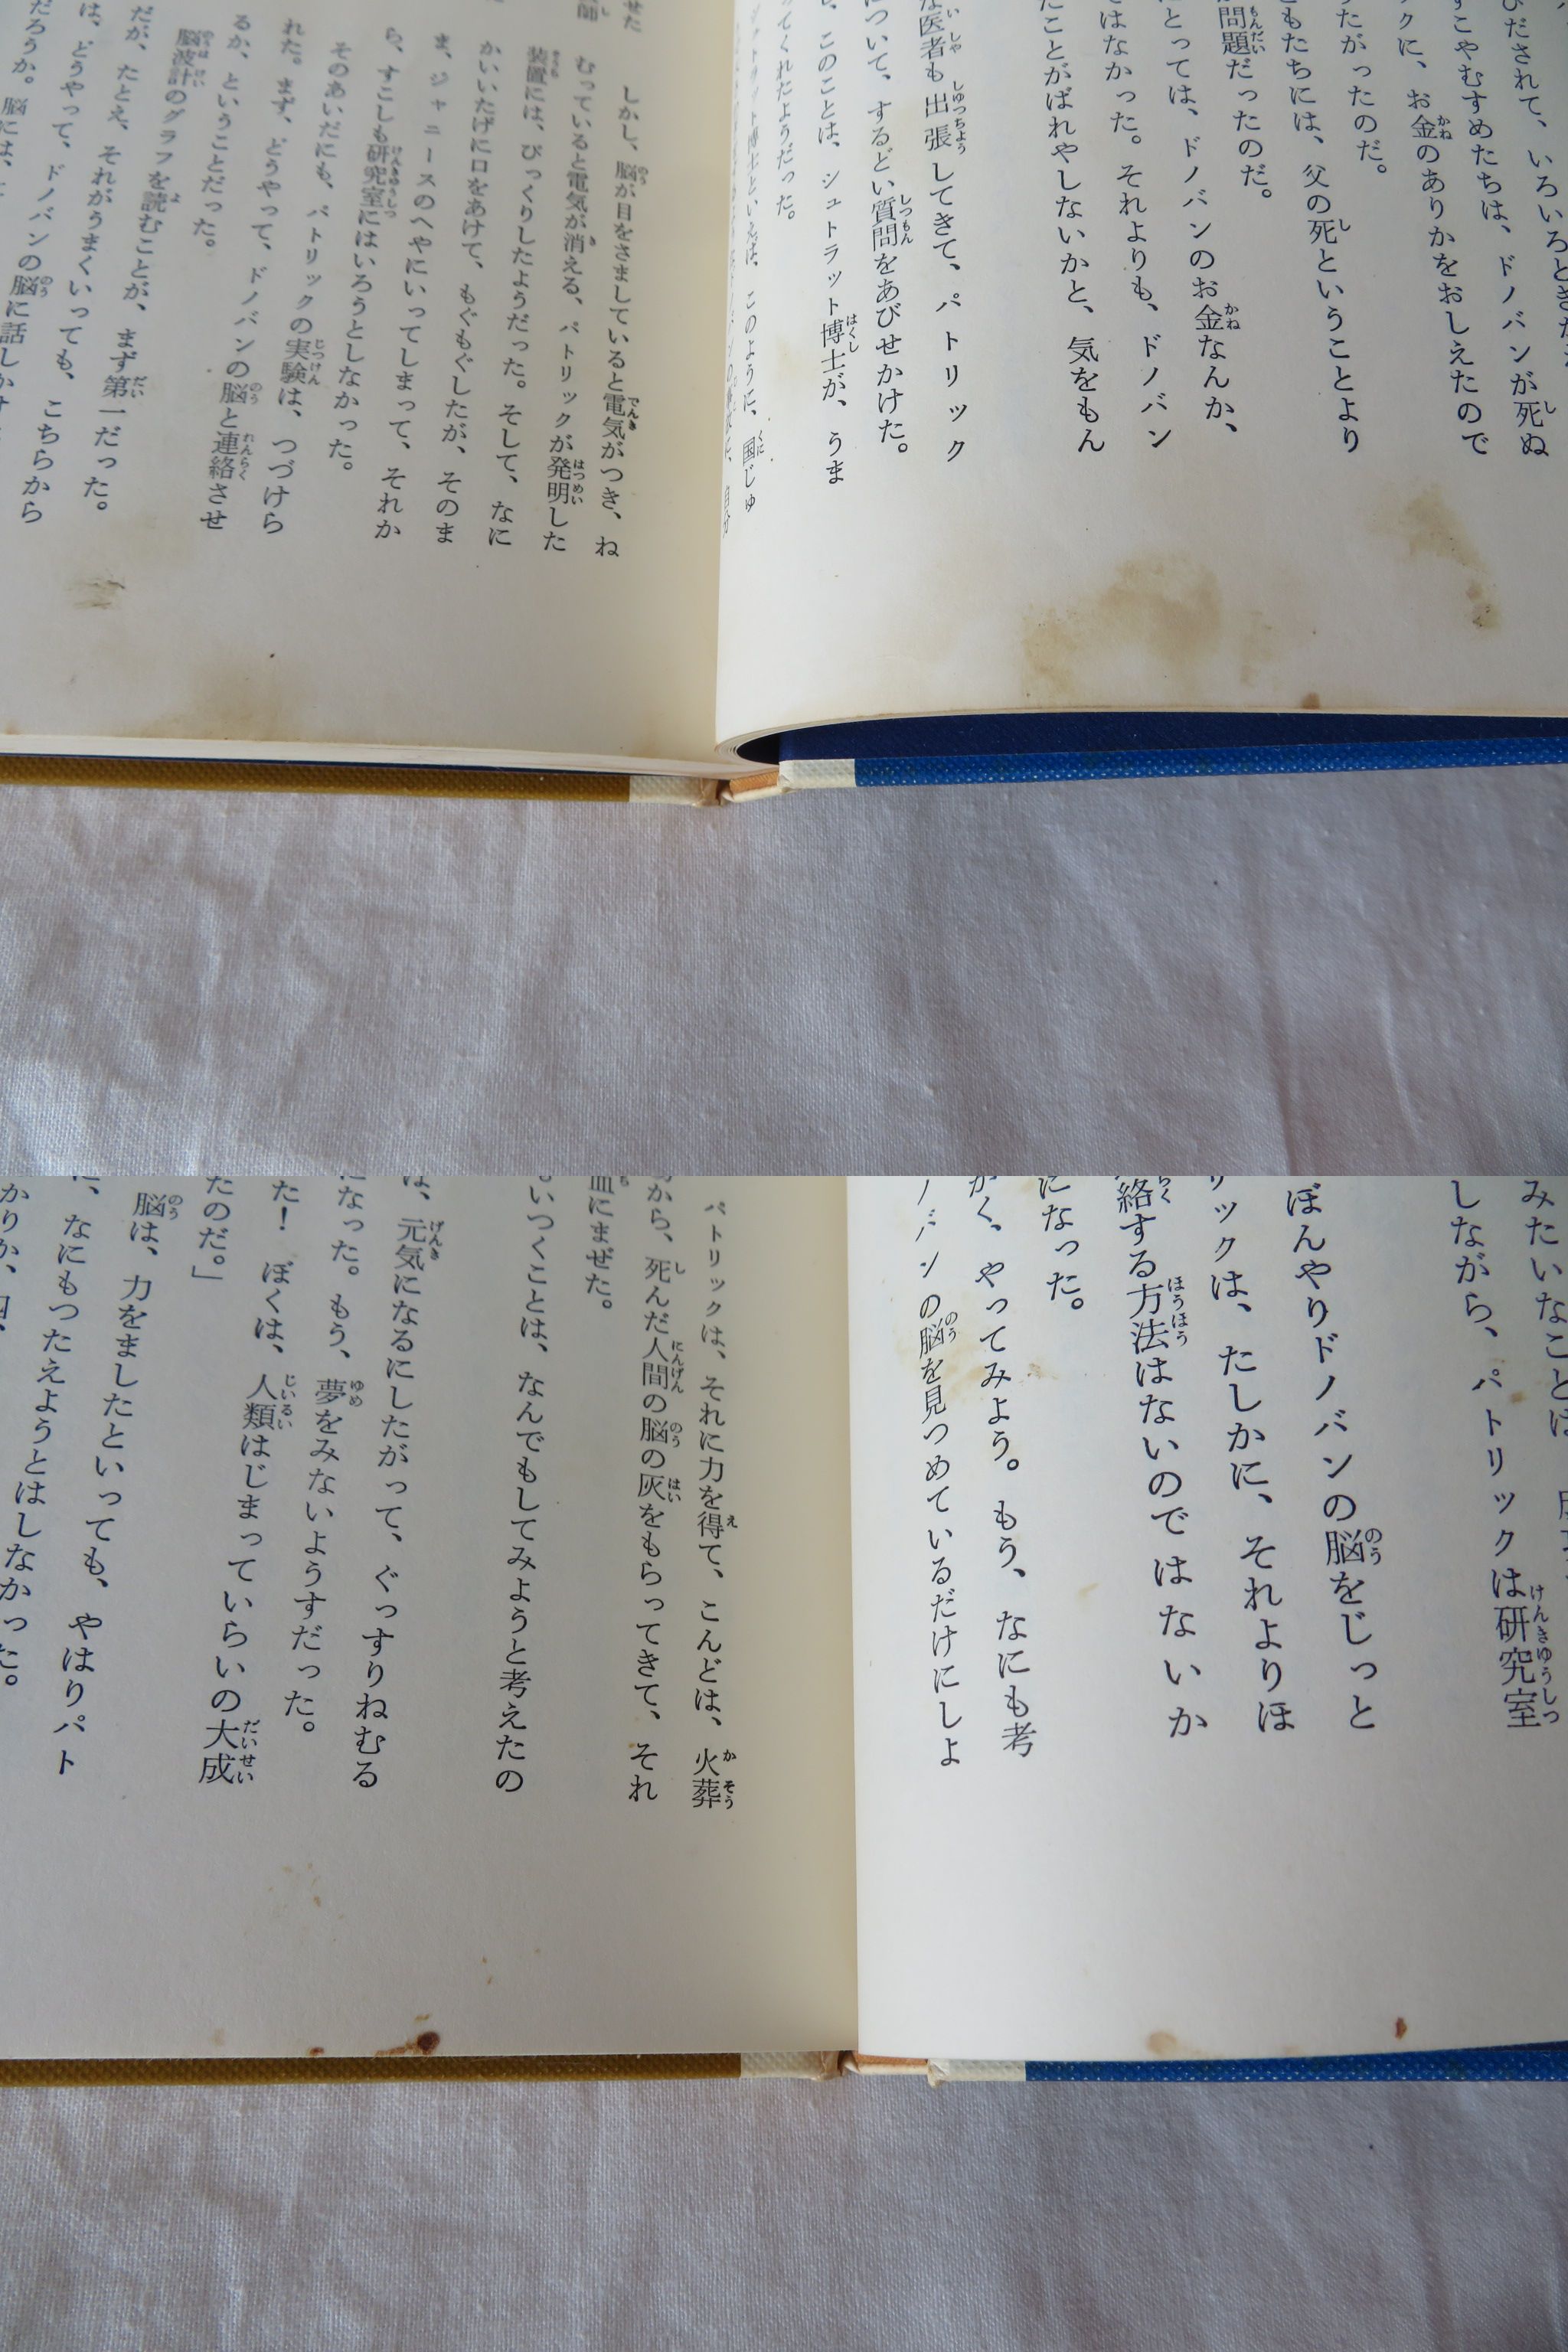 びだされて、いろいろときか
すこやむすめたちは、ドノバンが死ぬ
クに、お金のありかをおしえたので
たがったのだ。
どもたちには、父の死ということより
問題だったのだ。
とっては、ドノバンのお金なんか、
ではなかった。それよりも、ドノバン
たことがばれやしないかと、気をもん
な医者も出張してきて、パトリック
について、するどい質問をあびせかけた。
、このことは、シュトラット博士が、うま
ってくれたようだった。
博士といえば、このように、国じゅ
せた
師
しかし、脳が目をさましていると電気がつき、ね
むっていると電気が消える、パトリックが発明した
装置には、びっくりしたようだった。そして、なに
かいいたげに口をあけて、もぐもぐしたが、そのま
ま、ジャニースのへやにいってしまって、それか
ら、すこしも研究室にはいろうとしなかった。
そのあいだにも、パトリックの実験は、つづけら
れた。まず、どうやって、ドノバンの脳と連絡させ
るか、ということだった。
脳波計のグラフを読むことが、まず第一だった。
だが、たとえ、それがうまくいっても、こちらから
は、どうやって、ドノバンの脳に話しかけ
だろうか。脳には、
みたいなことは
しながら、パトリックは研究室
ぼんやりドノバンの脳をじっと
リックは、たしかに、それよりほ
絡する方法はないのではないか
になった。
かく、やってみよう。もう、なにも考
ノバンの脳を見つめているだけにしよ
パトリックは、それに力を得て、こんどは、火葬
から、死んだ人間の脳の灰をもらってきて、それ
血にまぜた。
いつくことは、なんでもしてみようと考えたの
は、元気になるにしたがって、ぐっすりねむる
になった。もう、夢をみないようすだった。
た！　ぼくは、人類はじまっていらいの大成
たのだ。」
脳は、力をましたといっても、やはりパト
、なにもつたえようとはしなかった。